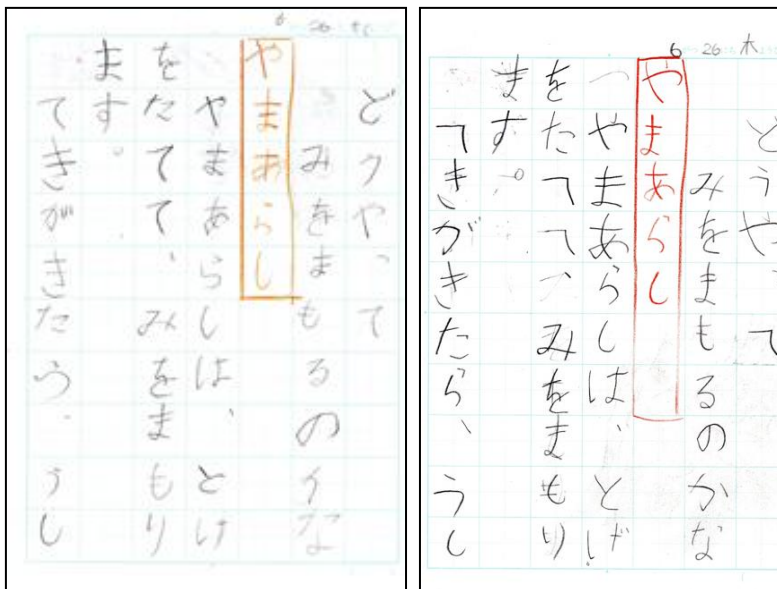 6 26 木
どうやって
みをまもるのかな
やまあらし
やまあらしは、とげ
をたてて、みをまもり
ます。
てきがきたら、うし
6 26 木
どうやって
みをまもるのかな
やまあらし
やまあらしは、とげ
をたてて、みをまもり
ます。
てきがきたら、うし